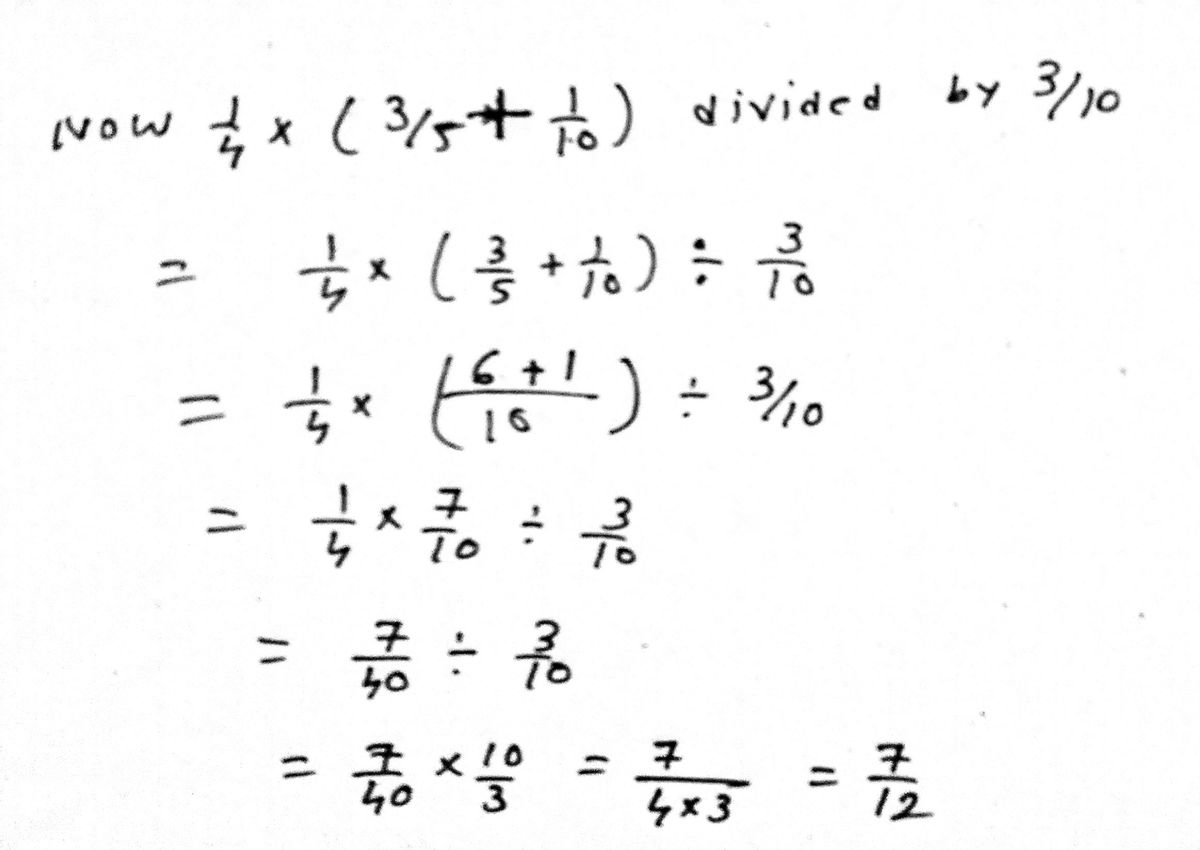 Now 1/4 × ( 3/5 + 1/10 ) divided by 3/10
= 1/4 × ( 3/5 + 1/10 ) ÷ 3/10
= 1/4 × ( (6 + 1)/10 ) ÷ 3/10
= 1/4 × 7/10 ÷ 3/10
= 7/40 ÷ 3/10
= 7/40 × 10/3 = 7/(4 × 3) = 7/12